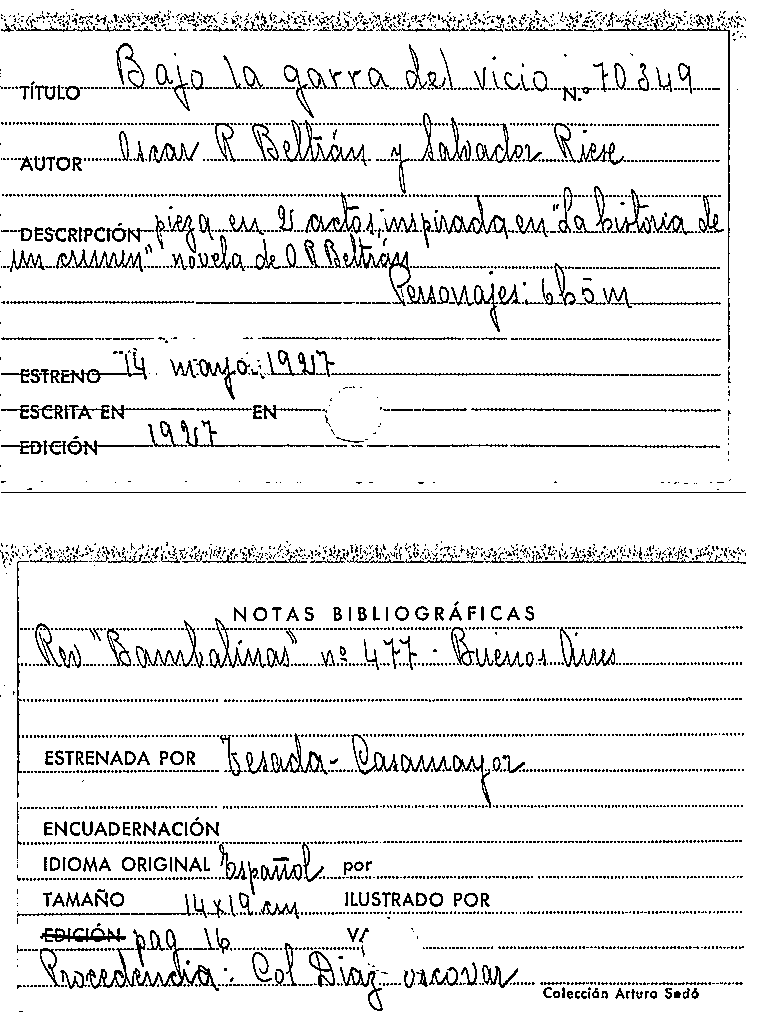 TÍTULO Bajo la garra del vicio N.º 70349
AUTOR Oscar R Beltrán y Salvador Riese
DESCRIPCIÓN pieza en 2 actos, inspirada en "La historia de
un crimen" novela de O R Beltrán
Personajes: 6h 5m
ESTRENO 14 mayo 1927
ESCRITA EN EN
EDICIÓN 1927
NOTAS BIBLIOGRÁFICAS
Rev "Bambalinas" nº 477 - Buenos Aires
ESTRENADA POR Tesada - Casamayor
ENCUADERNACIÓN
IDIOMA ORIGINAL Español por
TAMAÑO 14x19 cm ILUSTRADO POR
EDICIÓN pag 16
Procedencia: Col Diaz escovar
Colección Arturo Sedó